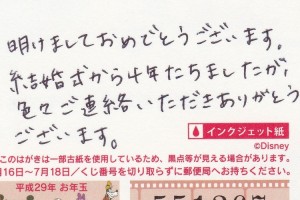 明けましておめでとうございます。
結婚式から4年たちましたが、
色々ご連絡いただきありがとう
ございます。
インクジェット紙
©Disney
このはがきは一部古紙を使用しているため、黒点等が見える場合があります。
月16日～7月18日／くじ番号を切り取らずに郵便局へお持ちください。
平成29年 お年玉